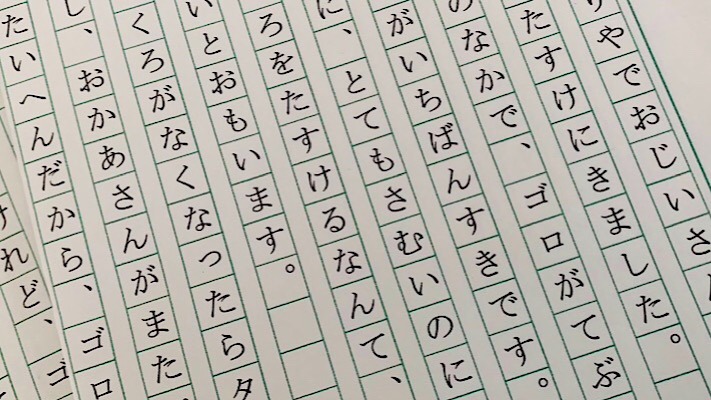 りやでおじいさ
たすけにきました。
のなかで、ゴロがてぶ
がいちばんすきです。
に、とてもさむいのに
ろをたすけるなんて、
いとおもいます。
くろがなくなったらタ
し、おかあさんがまた
たいへんだから、ゴロ
けれど、ゴ